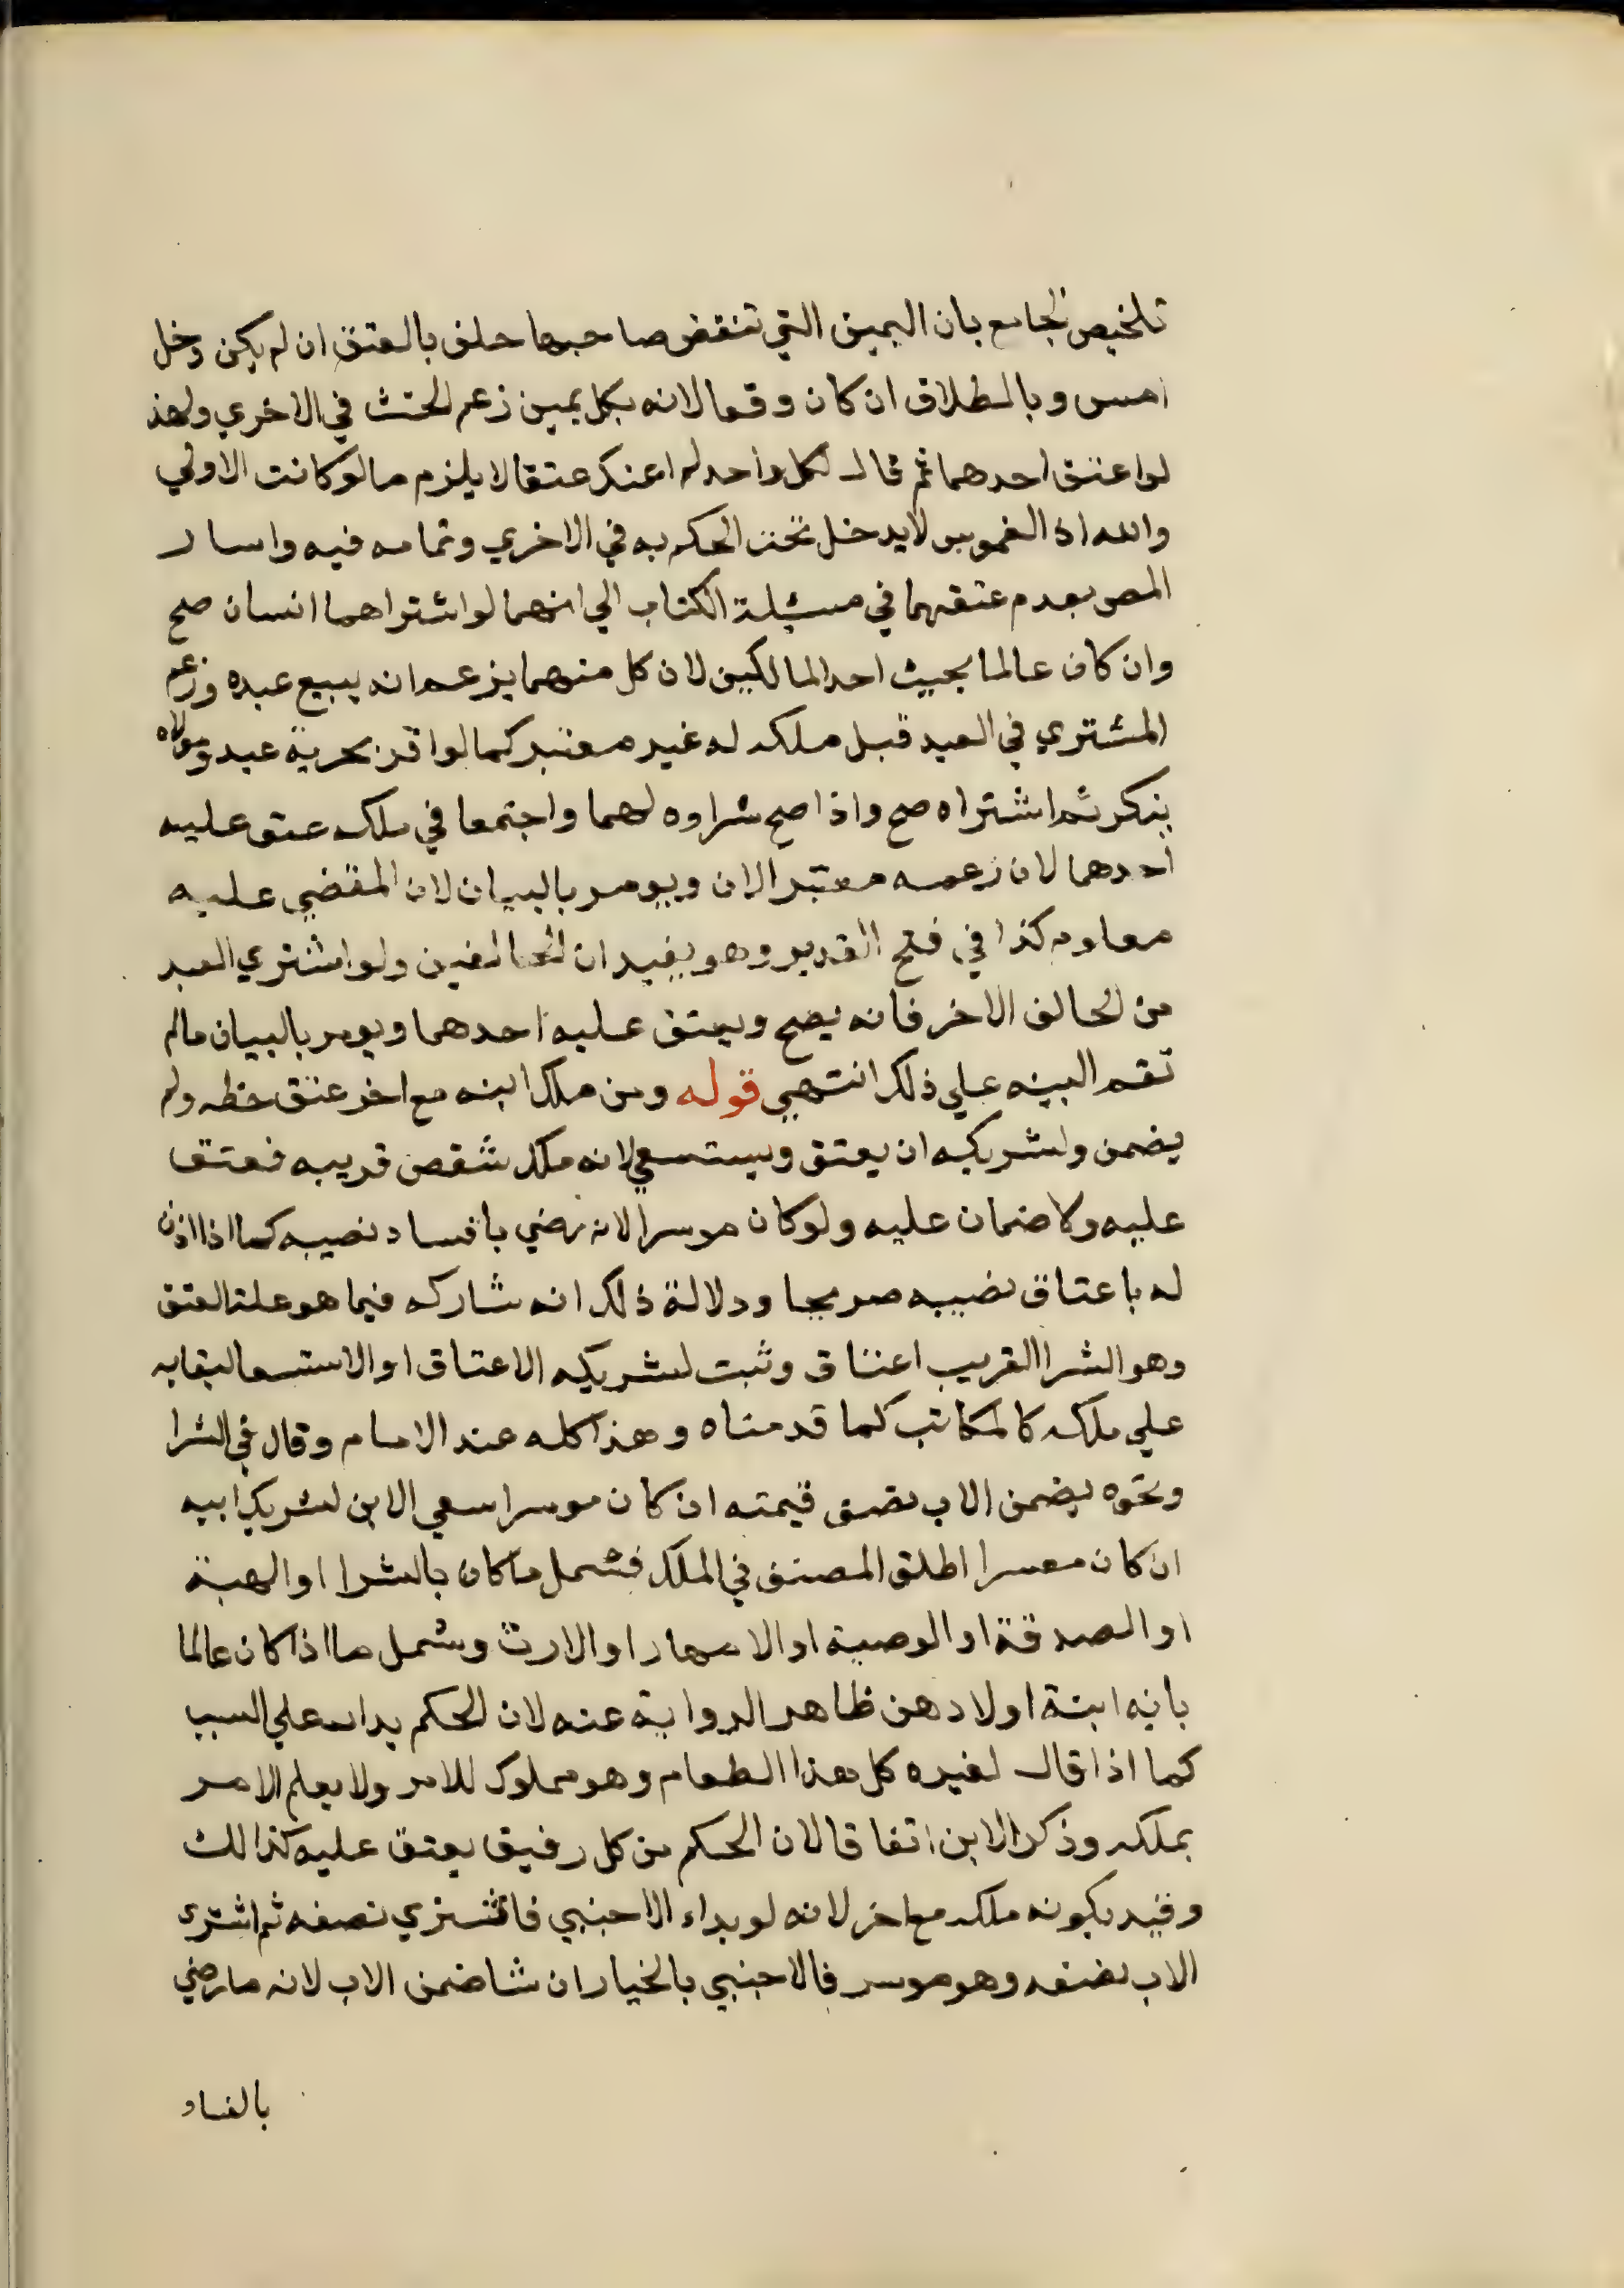 تلخيص الجامع بان اليمين التي تنقض صاحبها حلف بالعتق ان لم يكن دخل
امس وبالطلاق ان كان وقعا لانه بكل يمين زعم الحنث في الاخري ولهذ
لواعتق احدهما ثم قال لكل واحد لم اعنك عتقا لا يلزم مالوكانت الاولي
والله اذ الغموس لايدخل تحت الحكم به في الاخري وتمامه فيه واسار
المص بعدم عتقهما في مسئلة الكتاب الي انهما لواشتراهما انسان صح
وان كان عالما بحيث احد المالكين لان كل منهما يزعم انه يبيع عبده وزعم
المشتري في العبد قبل ملكه له غير معتبر كما لواقر بحرية عبد ومولاه
ينكر ثم اشتراه صح واذا صح شراوه لهما واجتمعا في ملكه عتق عليه
احدهما لان زعمه معتبر الان ويومر بالبيان لان المقضي عليه
معلوم كذا في فتح القدير وهو يفيد ان الحالفين ولواشتري العبد
من الحالف الاخر فانه يصح ويعتق عليه احدهما ويومر بالبيان مالم
تقم البينه علي ذلك انتهي قوله ومن ملك ابنه مع اخر عتق حظه ولم
يضمن ولشريكه ان يعتق ويستسعي لانه ملك شقص قريبه فعتق
عليه ولا ضمان عليه ولوكان موسرا لانه رضي بافساد نصيبه كما اذا اذن
له باعتاق نصيبه صريحا ودلالة ذلك انه شاركه فيما هو علة العتق
وهو الشرا القريب اعتاق وثبت لشريكه الاعتاق او الاستسعا لبقايه
علي ملكه كالمكاتب كما قدمناه وهذا كله عند الامام وقال في الشرا
ونحوه يضمن الاب نصف قيمته ان كان موسرا سعي الابن لشريك ابيه
ان كان معسرا اطلق المصنف في الملك فشمل ماكان بالشرا او الهبة
او الصدقة او الوصية او الامهار او الارث وشمل ما اذا كان عالما
بانه ابنة اولادهن ظاهر الرواية عنه لان الحكم يدار علي السبب
كما اذا قال لغيره كل هذا الطعام وهو مملوك للامر ولا يعلم الامر
بملكه وذكر الابن اتفاقا لان الحكم من كل رفيق يعتق عليه كذالك
وقيد بكونه ملكه مع اخر لانه لو بداء الاجنبي فاشتري نصفه ثم اشتري
الاب نصفه وهو موسر فالاجنبي بالخيار ان شا ضمن الاب لانه مارضي
بالفساد